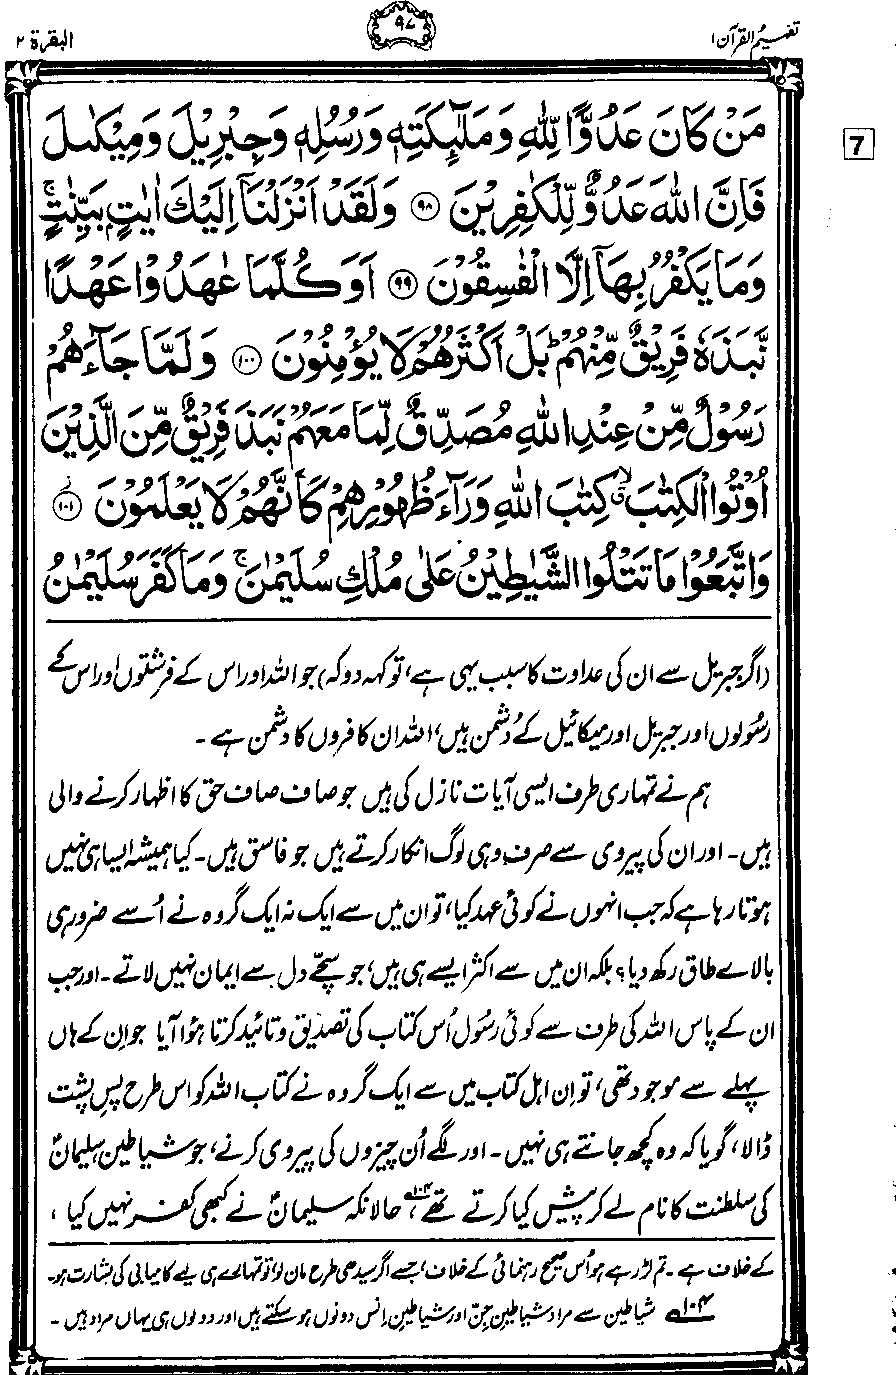 تفہیم القرآن ۱
۹۷
البقرة ۲
7
مَنْ كَانَ عَدُوًّا لِّلّٰهِ وَمَلٰٓئِكَتِهٖ وَرُسُلِهٖ وَجِبْرِيْلَ وَمِيْكٰىلَ
فَاِنَّ اللّٰهَ عَدُوٌّ لِّلْكٰفِرِيْنَ ﴿۹۸﴾ وَلَقَدْ اَنْزَلْنَآ اِلَيْكَ اٰيٰتٍۭ بَيِّنٰتٍ ۚ
وَمَا يَكْفُرُ بِهَآ اِلَّا الْفٰسِقُوْنَ ﴿۹۹﴾ اَوَكُلَّمَا عٰهَدُوْا عَهْدًا
نَّبَذَهٗ فَرِيْقٌ مِّنْهُمْ ؕ بَلْ اَكْثَرُهُمْ لَا يُؤْمِنُوْنَ ﴿۱۰۰﴾ وَلَمَّا جَآءَهُمْ
رَسُوْلٌ مِّنْ عِنْدِ اللّٰهِ مُصَدِّقٌ لِّمَا مَعَهُمْ نَبَذَ فَرِيْقٌ مِّنَ الَّذِيْنَ
اُوْتُوا الْكِتٰبَ ۙۗ كِتٰبَ اللّٰهِ وَرَآءَ ظُهُوْرِهِمْ كَاَنَّهُمْ لَا يَعْلَمُوْنَ ﴿۱۰۱﴾
وَاتَّبَعُوْا مَا تَتْلُوا الشَّيٰطِيْنُ عَلٰى مُلْكِ سُلَيْمٰنَ ۚ وَمَا كَفَرَ سُلَيْمٰنُ
(اگر جبریل سے ان کی عداوت کا سبب یہی ہے، تو کہہ دو کہ) جو اللہ اور اس کے فرشتوں اور اس کے
رسُولوں اور جبریل اور میکائیل کے دُشمن ہیں، اللہ ان کافروں کا دشمن ہے۔
ہم نے تمہاری طرف ایسی آیات نازل کی ہیں جو صاف صاف حق کا اظہار کرنے والی
ہیں۔ اور ان کی پیروی سے صرف وہی لوگ انکار کرتے ہیں جو فاسق ہیں۔ کیا ہمیشہ ایسا ہی نہیں
ہوتا رہا ہے کہ جب انہوں نے کوئی عہد کیا، تو ان میں سے ایک نہ ایک گروہ نے اُسے ضرور ہی
بالائے طاق رکھ دیا؟ بلکہ ان میں سے اکثر ایسے ہی ہیں، جو سچّے دل سے ایمان نہیں لاتے۔ اور جب
ان کے پاس اللہ کی طرف سے کوئی رسُول اُس کتاب کی تصدیق و تائید کرتا ہُوا آیا جو اِن کے ہاں
پہلے سے موجود تھی، تو اِن اہل کتاب میں سے ایک گروہ نے کتاب اللہ کو اس طرح پسِ پشت
ڈالا، گویا کہ وہ کچھ جانتے ہی نہیں۔ اور لگے اُن چیزوں کی پیروی کرنے، جو شیاطین، سلیمانؑ
کی سلطنت کا نام لے کر پیش کیا کرتے تھے،۱۰۴ حالانکہ سلیمانؑ نے کبھی کفر نہیں کیا،
کے خلاف ہے۔ تم لڑ رہے ہو اُس صحیح رہنمائی کے خلاف، جسے اگر سیدھی طرح مان لو تو تمہارے ہی لیے کامیابی کی بشارت ہو۔
۱۰۴ شیاطین سے مراد شیاطینِ جِنّ اور شیاطینِ اِنس دونوں ہو سکتے ہیں اور دونوں ہی یہاں مراد ہیں۔